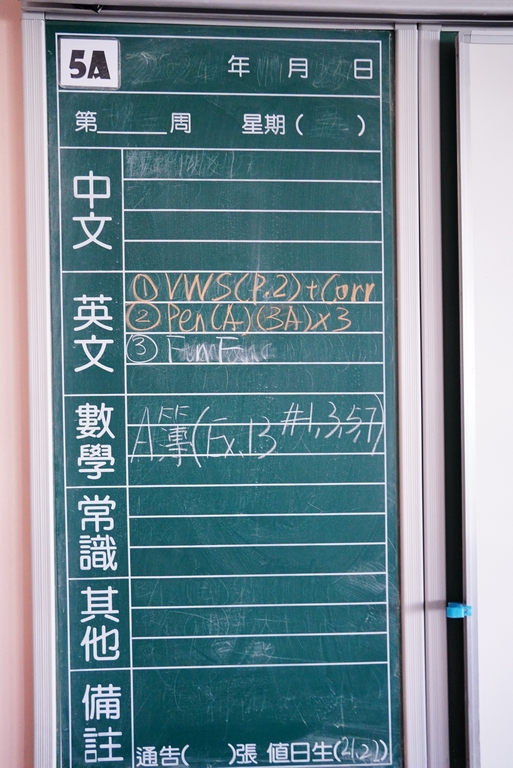 5A
年 月 日
第 周 星期( )
中文
英文
① VWS(P.2)+Corr
② Pen(A)(3A)x3
③ Fun F
數學
A簿(Ex.13 #1,3,5,7)
常識
其他
備註
通告( )張 值日生(21,22)